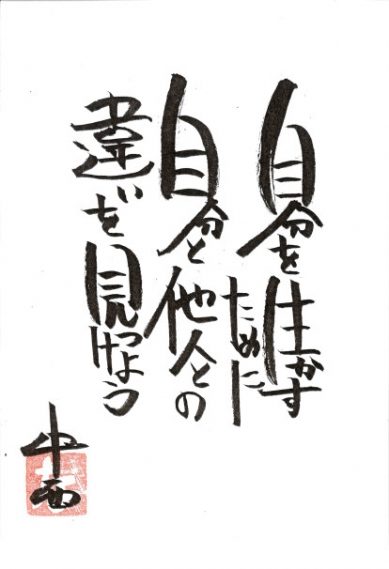 自分を生かす
ために
自分と他人との
違いを
見つけよう
中西